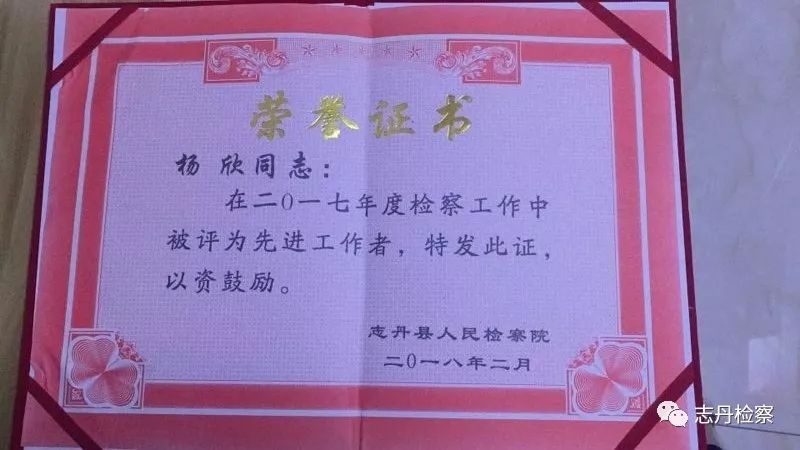 荣誉证书
杨 欣同志：
在二〇一七年度检察工作中
被评为先进工作者，特发此证，
以资鼓励。
志丹县人民检察院
二〇一八年二月
志丹检察